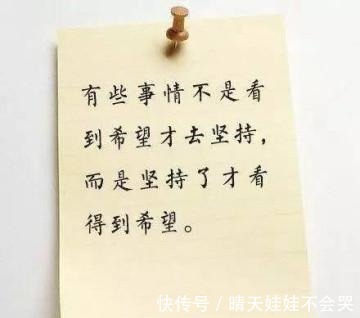 有些事情不是看
到希望才去坚持，
而是坚持了才看
得到希望。
快传号/晴天娃娃不会哭